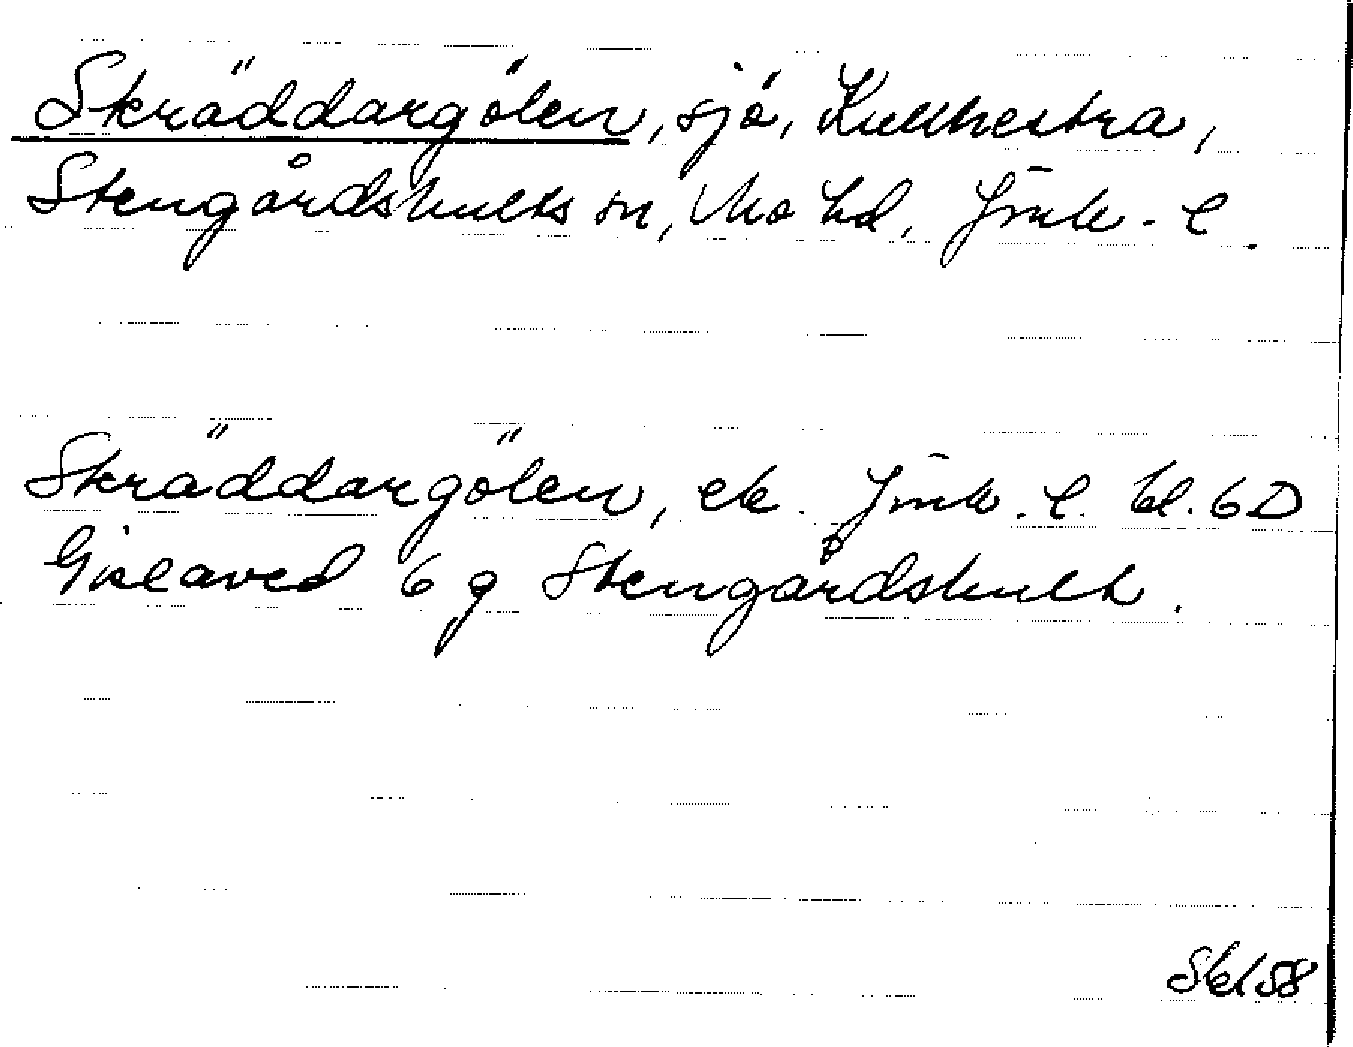 Skräddargölen, sjö, Kulthestra,
Stengårdshults sn, Mo hd, Jönk. l.
Skräddargölen, ek. Jönk. l. bl. 6D
Gislaved 6 g Stengårdshult.